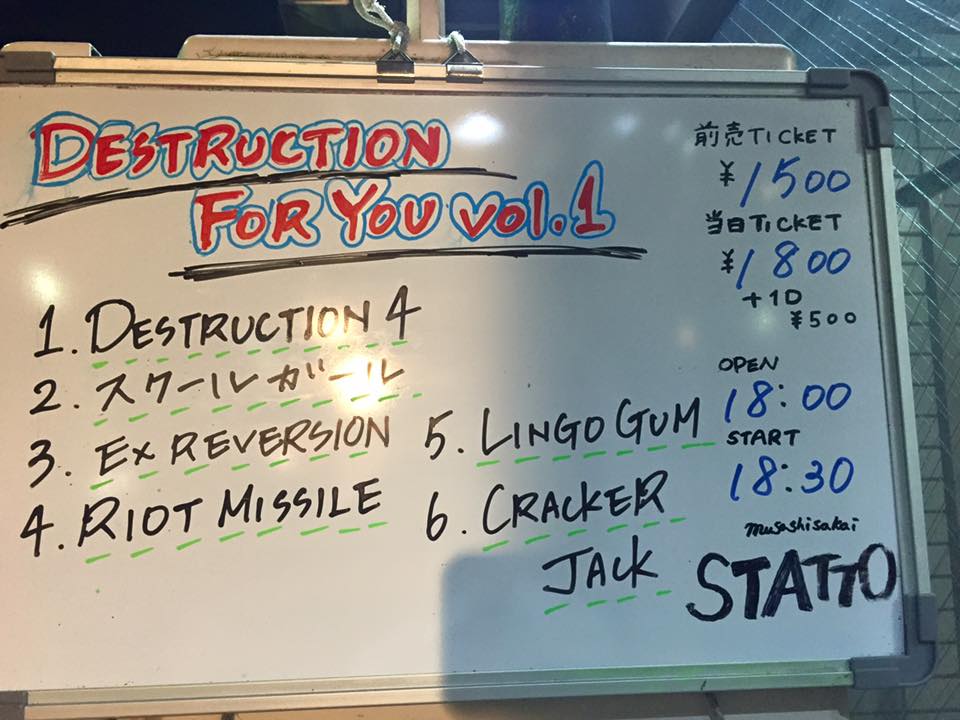 DESTRUCTION
FOR YOU VOL.1
1. DESTRUCTION 4
2. スクールガール
3. EX REVERSION
4. RIOT MISSILE
5. LINGO GUM
6. CRACKER
JACK
前売TICKET
¥1500
当日TICKET
¥1800
+1D
¥500
OPEN
18:00
START
18:30
musashisakai
STATTO